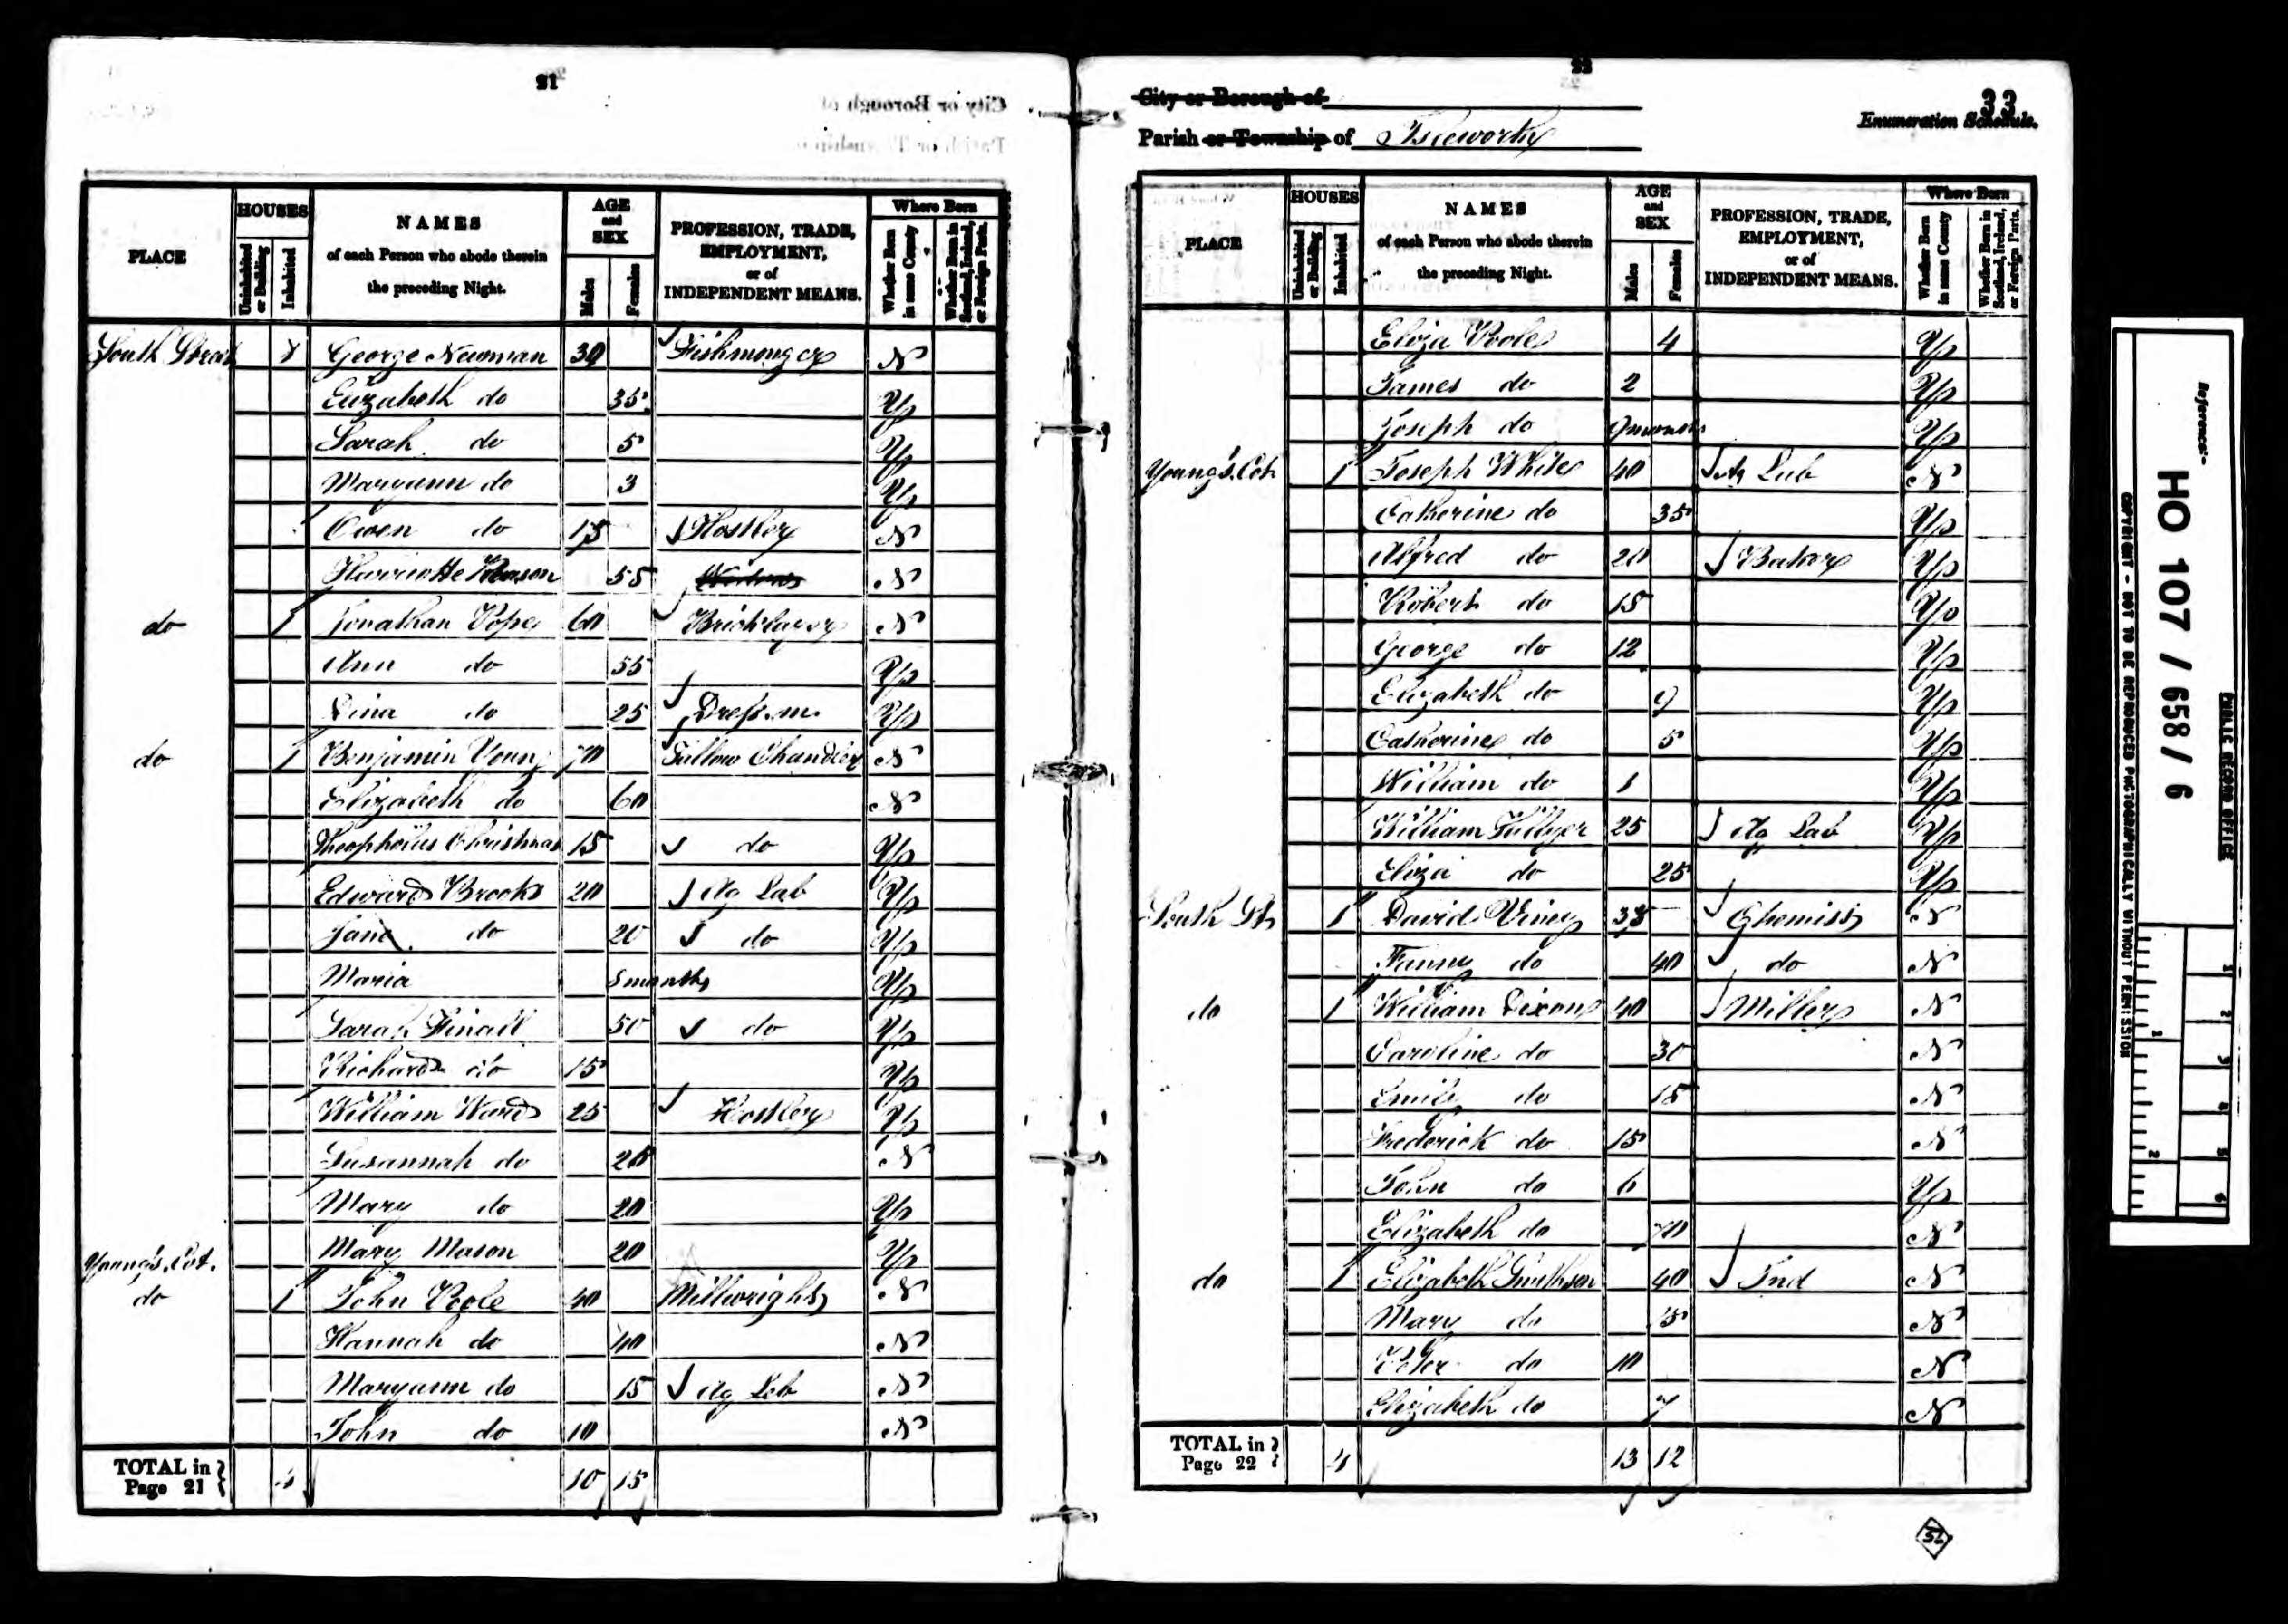 21
PLACE
HOUSES
Uninhabited or Building
Inhabited
NAMES
of each Person who abode therein
the preceding Night.
AGE
and
SEX
Males
Females
PROFESSION, TRADE,
EMPLOYMENT,
or of
INDEPENDENT MEANS.
Where Born
Whether Born in same County
Whether Born in Scotland, Ireland, or Foreign Parts.
South Street 1 George Newman 30 Fishmonger N
Elizabeth do 35 Y
Sarah do 5 Y
Maryann do 3 Y
Owen do 15 Hostler N
Harriotte 55 N
do 1 Jonathan Pope 60 Bricklayer N
Ann do 55 Y
Dina do 25 Dress. m. Y
do 1 Benjamin Young 70 Tallow Chandler N
Elizabeth do 60 N
Theophilus Christmas 15 do Y
Edward Brooks 20 Ag Lab Y
Jane do 20 do Y
Maria 8 months Y
Sarah 50 do Y
Richard do 15 Y
William Ward 25 Hostler Y
Susannah do N
Mary do 20 Y
Young's Cot. Mary Mason 20 Y
do 1 John Poole 40 Millwright N
Hannah do 40 N
Maryann do 15 Ag Lab N
John do 10 N
TOTAL in
Page 21 4 10 15
22
City or Borough of
Parish or Township of Isleworth
33
Enumeration Schedule.
PLACE
HOUSES
Uninhabited or Building
Inhabited
NAMES
of each Person who abode therein
the preceding Night.
AGE
and
SEX
Males
Females
PROFESSION, TRADE,
EMPLOYMENT,
or of
INDEPENDENT MEANS.
Where Born
Whether Born in same County
Whether Born in Scotland, Ireland, or Foreign Parts.
Eliza Poole 4 Y
James do 2 Y
Joseph do 9 months Y
Young's Cot. 1 Joseph White 40 Ag Lab N
Catherine do 35 Y
Alfred do 20 Baker Y
Robert do 15 Y
George do 12 Y
Elizabeth do 9 Y
Catherine do 5 Y
William do 1 Y
William 25 Ag Lab Y
Eliza do 25 Y
South St 1 David Viney Chemist N
Fanny do 40 do N
do 1 William Dixon 40 Miller N
Caroline do 30 N
Emily do 15 N
Frederick do 15 N
John do 6 Y
Elizabeth do 70 N
do 1 Elizabeth 40 Ind N
Mary do 15 N
Peter do 10 N
Elizabeth do 7 N
TOTAL in
Page 22 4 13 12
Reference:-
HO 107 / 658 / 6
PUBLIC RECORD OFFICE
COPYRIGHT - NOT TO BE REPRODUCED PHOTOGRAPHICALLY WITHOUT PERMISSION
1
2
1 2 3 4 5 6